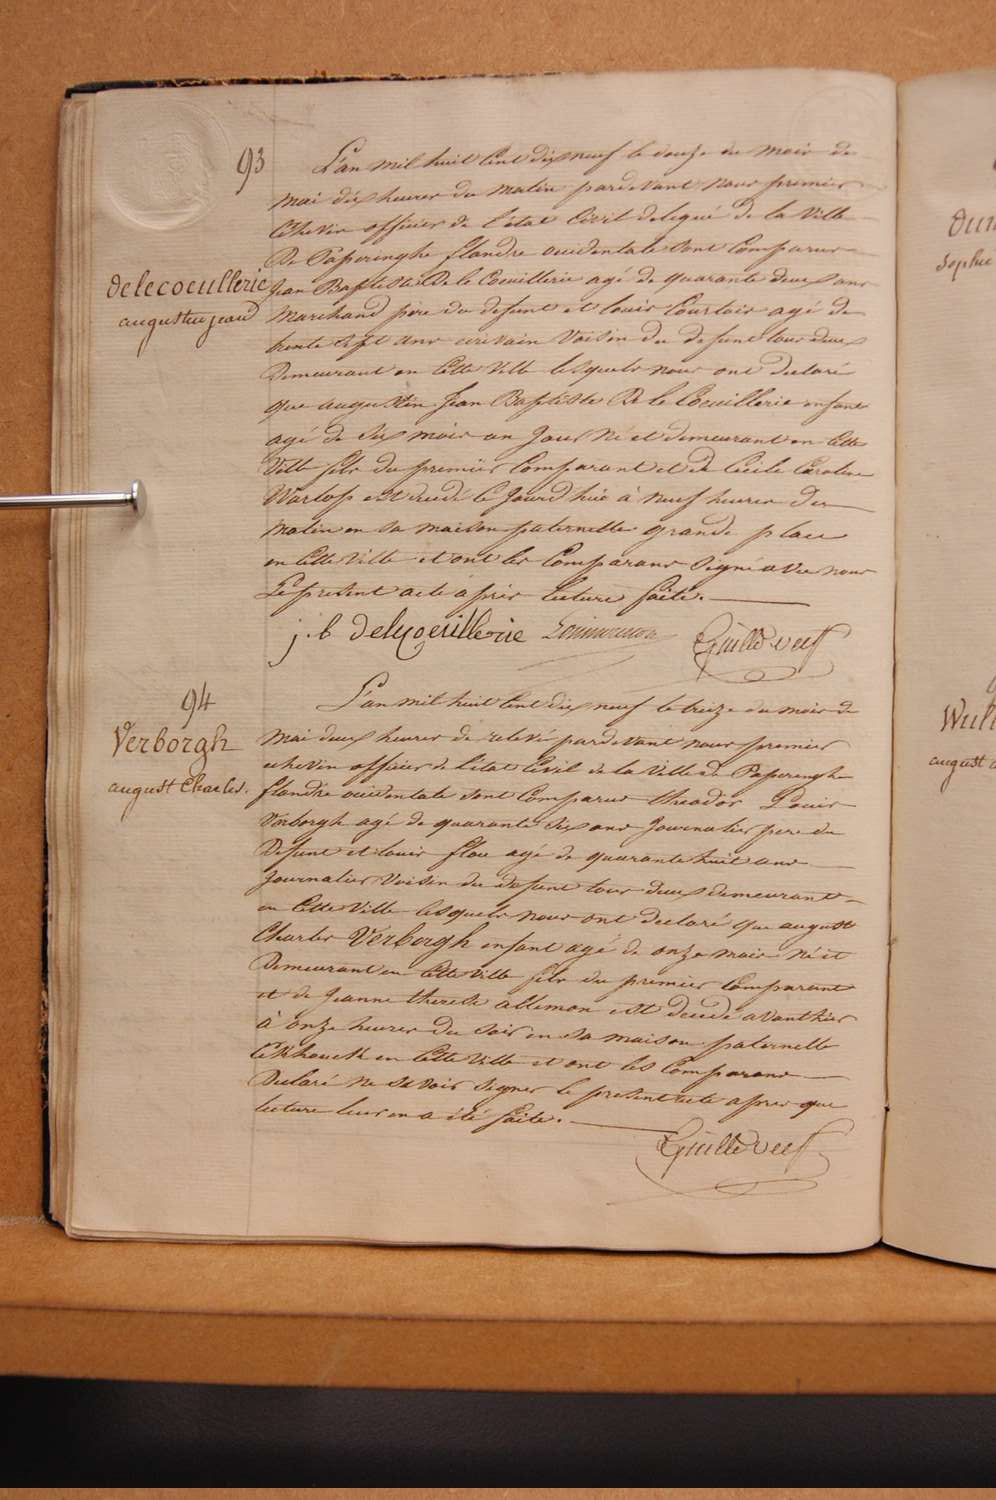 93
delecoeullerie
augustin jean
L'an mil huit Cent dix neuf le douze du mois de
mai dix heures du matin pardevant nous premier
Echevin officier de l'état Civil delegué de la Ville
De Poperinghe flandre occidentale sont Comparus
Jean Baptiste De le Coeuillerie agé de quarante deux ans
Marchand pere du defunt et louis Courtois agé de
trente sept ans ecrivain Voisin du defunt tous deux
Demeurant en Cette Ville lesquels nous ont declaré
que augustin Jean Baptiste De le Coeuillerie enfant
agé de six mois un Jour Né et demeurant en Cette
Ville fils du premier Comparant et de Cecile Caroline
Warlop est decedé le Jourd'hui à neuf heures du
Matin en sa maison paternelle grande place
en Cette Ville et ont les Comparans Signé avec nous
Le present acte après lecture faite.
j. b delecoeuillerie
94
Verborgh
august Charles.
L'an mil huit Cent dix neuf le treize du mois de
Mai deux heures de relevé pardevant nous premier
echevin officier de l'état Civil de la Ville de Poperinghe
flandre occidentale sont Comparus theador Louis
Verborgh agé de quarante six ans Journalier pere du
Defunt et louis flou agé de quarante huit ans
Journalier Voisin du defunt tous deux demeurant
en Cette Ville lesquels nous ont declaré que august
Charles Verborgh enfant agé de onze mois Né et
Demeurant en Cette Ville fils du premier Comparant
et de Jeanne therese allemon est decedé avanthier
à onze heures du soir en sa maison paternelle
en Cette Ville et ont les Comparans
Declaré ne savoir signer le present acte apres que
lecture leur en a été faite.